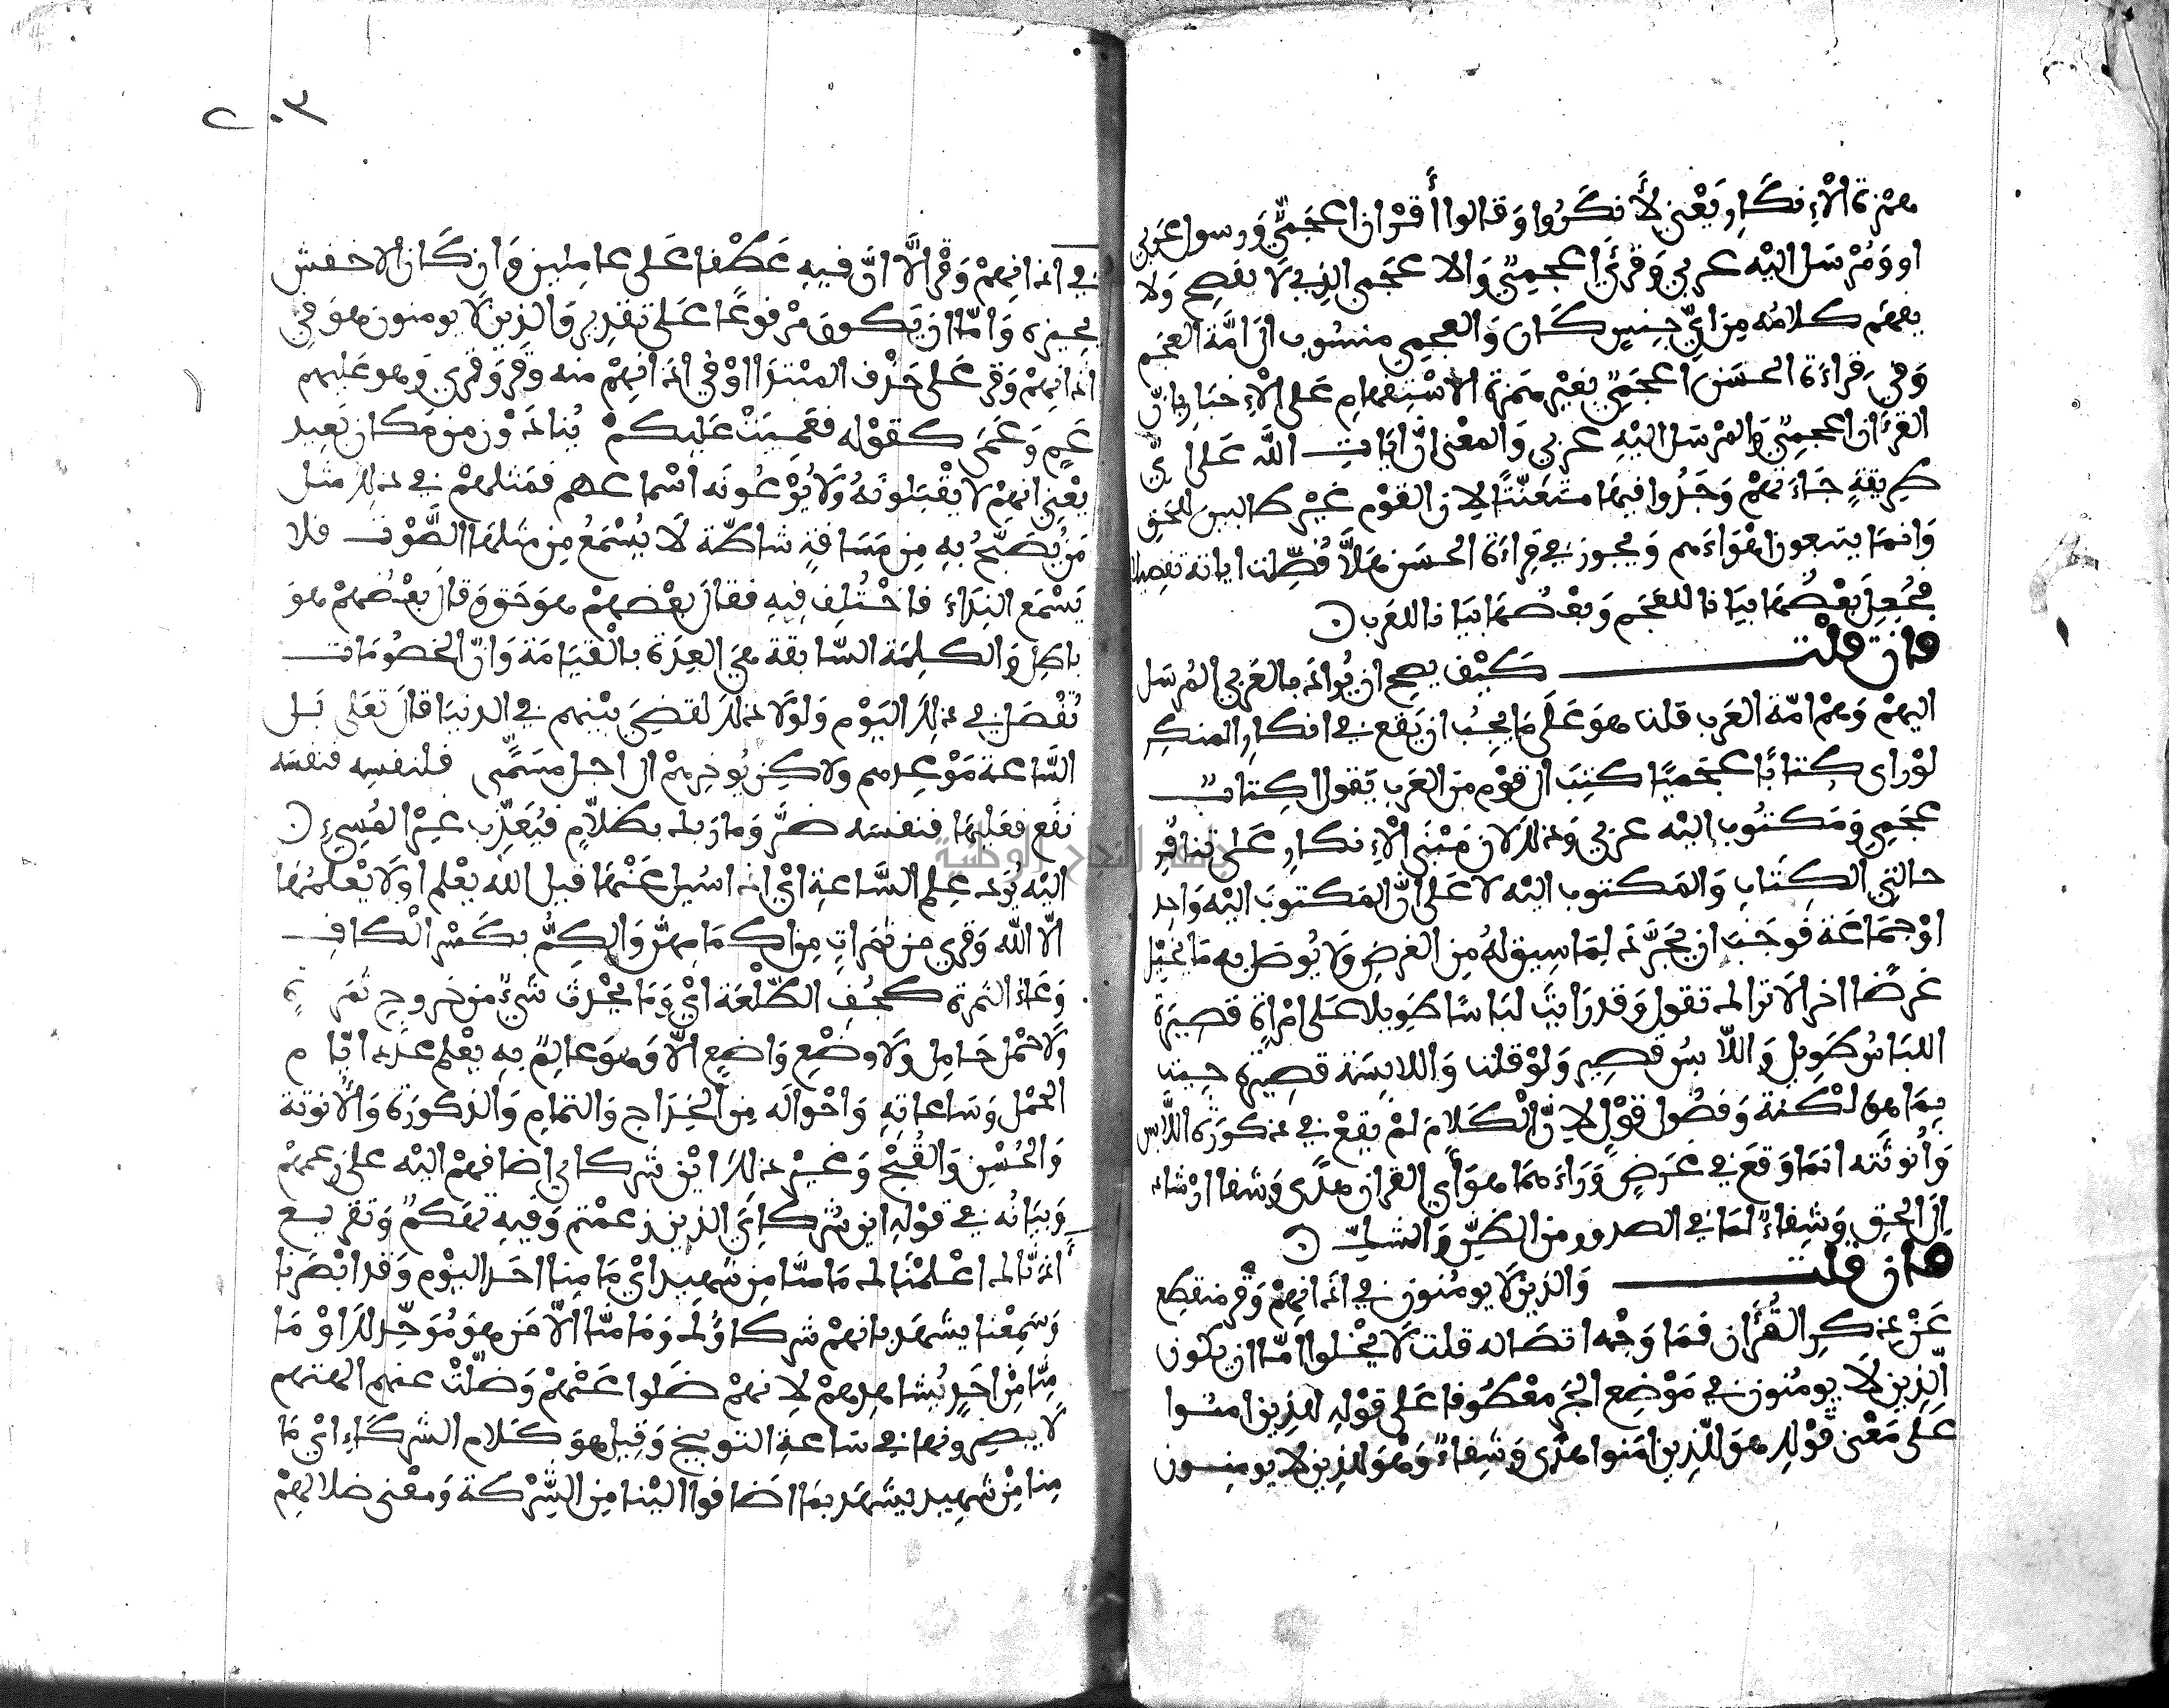 همزة الْإِنكَارِ يَعْنِي لَأَنكَرُوا وَقالوا أَقُرْان اعجَمِيٌّ وَرسول عَرَبي
او وَمُرْسَل اليْه عربي وَقُرِئَ اعجمِيٌّ وَالاعجَمي الذِي لَا يفصِح وَلا
يفهَم كلامُه مِن ايِّ جِنسٍ كَان وَالعجمِي منسُوب الى امَّة العجَم
وَفي قِراءَة الحسَن اعجَمِيٌّ بغيْر همَزة الاسْتِفهامِ عَلى الْإِخبَارِ بانّ
القرءَان اعجمِيٌّ وَالمرْسَل اليْهِ عربي وَالمعْنى انّ ايَاتِ اللَّه عَلى ايِّ
طرِيقةٍ جَاءَتهُمْ وَجَدُوا فيهَا متَعَنَّتًا لان القوْم غيْر طالبين للحَقِّ
وَانمَا يتبعون اهْوَاءَهم وَيجوز في قِراءَة الحسَن هَلَّا فُصِّلت اياته تفصِيلا
فجُعِلَ بَعْضُهَا بيَانا للعَجَم وَبعْضُهَا بيَانا للعَرب
فان قلت كَيْف يصِح ان يُرادَ بالعَرَبي المُرسَل
اليهمْ وَهمْ امّة العَرَب قلت هوَ عَلَى مَا يجِبُ ان يَقع في انكارِ المنكِر
لوْ راى كِتابًا عجَميًّا كتِبَ الى قوْم منَ العَرَب يَقول اكِتابٌ
عجَمِي وَمَكتُوبٌ إليْه عربي وَذلك لان مَبْنَى الْإِنكارِ عَلى تنافُرِ
حالتي الكِتَابِ وَالمَكتوب اليْه لا عَلى انَّ المَكتوبَ اليْه وَاحِد
اوْ جمَاعَة فوجَبَ ان يجَرَّدَ لِمَا سِيق لهُ مِن الغرضِ وَلا يُوصَل به مَا يخيِّل
غرضًا اخر الا ترا لك تقول وَقد رَايتَ لبَاسًا طوِيلا عَلى امْرَاةٍ قصِيرَة
اللبَاسُ طوِيل وَاللّابسُ قصِير وَلوْ قلت وَاللابسَة قصِيرَة جِيتَ
بمَا هوَ لكْنَة وَفضُول قوْلٍ لانّ الْكَلَامَ لمْ يقعْ في ذكورَة اللَّابس
وَأُنوثَته انمَا وَقعَ في غرَضٍ وَرَاءَهمَا هوَ أي القران هدًى وَشفا ارْشاد
الَى الحقِّ وَشِفاءٌ لمَا في الصدور من الظنِّ وَالشكِّ
فان قلت وَالذِين لَا يومُنون في اذانِهمْ وَقْر منقطِع
عَنْ ذكرِ القُرْان فمَا وَجْه اتصَاله قلت لَا يخْلوا امَّا ان يكون
الَّذِين لَا يومُنون في مَوْضعِ الجرّ معْطوفا عَلى قوْلِه للذِين امنُوا
عَلى مَعْنى قوْلِك هوَ للَّذِين امَنوا هدًى وَشِفاءٌ وَهْوَ للذِين لَا يومنون
٢٠٣
في اذانِهمْ وَقر الَّا انَّ فيهِ عَطْفا عَلى عامِلين وَان كَان الاخفش
يجيزه وَامّا ان يَكون مَرْفوعًا عَلى تقدِير وَالذِين لا يومنون هوَ في
اذانهِمْ وَقر عَلى حَذْف المبْتدَا اوْ في اذانِهمْ منه وَقر وَقري وَهو عَليهم
عَمٍ وَعَمَى كقوْله فعَميَتْ عَليكمْ يُنادَوْن من مَّكان بَعِيد
يعْني انهمْ لا يقْبَلونَهُ وَلا يُرْعُونَه اسْماعهم فمَثلهمْ في ذلك مثل
مَن يُصَيَّحُ بهِ مِن مَسَافةٍ شاطّة لَا يُسْمَعُ مِن مثلهَا الصَّوْت فلا
يَسْمَع النِدَاءَ فاخْتُلِف فِيهِ فقالَ بعْضهمْ هوَ حَق وَقالَ بعْضُهمْ هوَ
باطِل وَالكلِمَة السَّابقة هيَ العِدَة بالقيَامَة وَانّ الخصُومَات
تُفْصَل في ذلِكَ اليَوْم وَلوْلا ذلكَ لقضِيَ بيْنهم في الدنيَا قالَ تعَلى بَل
السَّاعة مَوْعِدهم ولاكِن يُوخرهمْ الى اجل مسَمًّى فلنفسِهِ فنفسَه
نفَع فعَليهَا فنفسَه ضَرَّ وَما رَبك بظلَّامٍ فيُعَذِّب غيْر المُسِيءِ
اليْه يُرَد عِلم السَّاعةِ ايْ اذا سُيل عَنْهَا قيل اللَّه يعْلم اوْ لَا يعْلمُهَا
الّا اللَّه وَقري من ثمَراتٍ مِن اكمَامِهنَّ وَالكِمُّ بكَسْر الْكافِ
وِعَاء الثمرَة كجُفِّ الطَّلْعَة ايْ وَمَا يحْدث شيْءٌ من خروجِ ثمَرةٍ
وَلَا حَمْل حَامِل وَلَا وضْعِ وَاضعٍ الّا وَهوَ عالِمٌ بهِ يعْلم عدَد ايّام
الحمْل وَسَاعاتِهِ وَاحْوَالَه مِن الخِدَاج وَالتمَامِ وَالذكورَة وَالأنوثة
وَالحُسْنِ وَالقُبْحِ وَغيْر ذلكَ ايْن شركائي اضافهمْ اليْه على زعمهمْ
وَبيَانُه في قوْلِه اين شُرَكاءِيَ الذين زعمْتم وَفيهِ تهَكّمٌ وَتقريع
ءَاذنّاك اعْلمْنَاك مَا منَّا مِن شهيد ايْ مَا مِنا احَد اليوْم وَقد ابْصَرنا
وَسَمِعْنا يشْهَد بانهمْ شركاؤُك وَمَا منَّا الّا مَن هوَ مُوَحِّد لكَ اوْ مَا
مِنَّا مِنْ احَدٍ يُشاهِدهمْ لِانهمْ ضَلوا عَنْهمْ وَضَلَّتْ عنهم الهتهم
لا يبصِرونها في سَاعةِ التوبيخ وَقِيل هوَ كَلام الشرَكَاءِ ايْ مَا
مِنا مِنْ شهيد يشهَد بمَا اضافوا اليْنا مِن الشِّرْكة وَمعْنى ضلالهِمْ
جامعة النجاح الوطنية